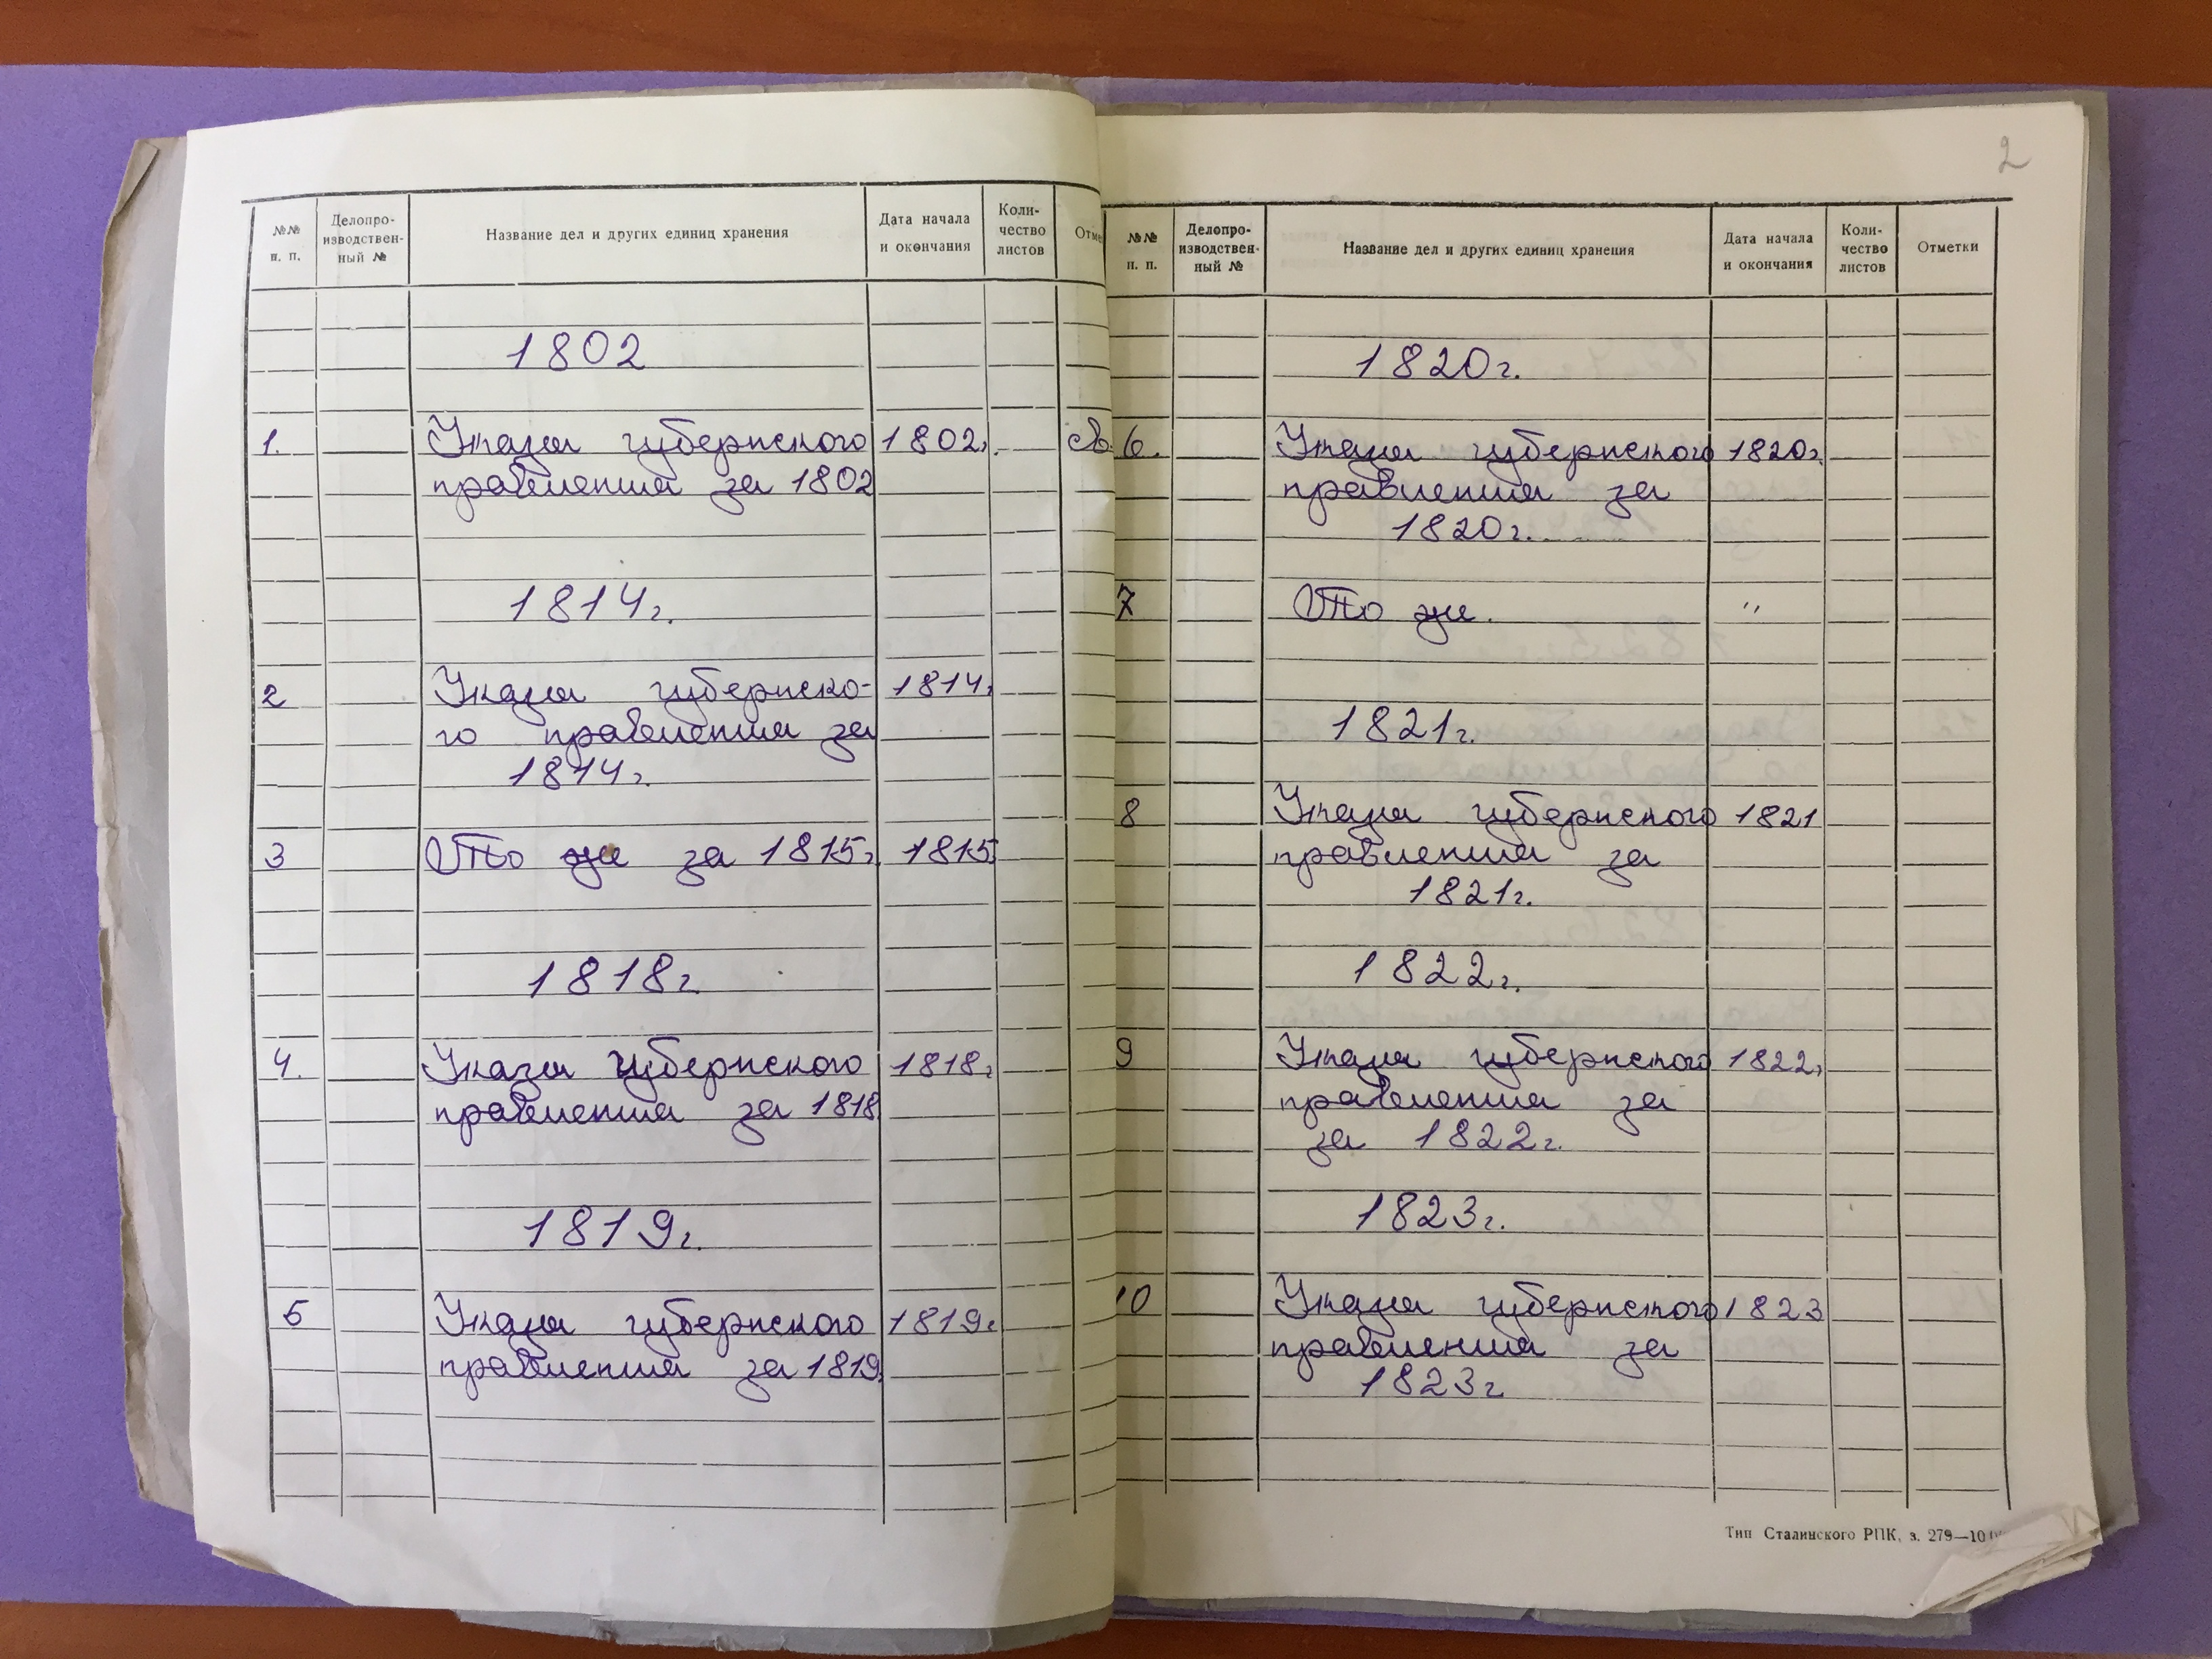 №№ п. п.
Делопро-
изводствен-
ный №
Название дел и других единиц хранения
Дата начала
и окончания
Коли-
чество
листов
Отме
1802
1. Указы губернского 1802г.
правления за 1802
1814г.
2 Указы губернско- 1814г.
го правления за
1814г.
3 То же за 1815г. 1815
1818г.
4. Указы губернского 1818г.
правления за 1818
1819г.
5 Указы губернского 1819г.
правления за 1819.
2
№№ п. п.
Делопро-
изводствен-
ный №
Название дел и других единиц хранения
Дата начала
и окончания
Коли-
чество
листов
Отметки
1820г.
6. Указы губернского 1820г.
правления за
1820г.
7 То же. "
1821г.
8 Указы губернского 1821
правления за
1821г.
1822г.
9 Указы губернского 1822г.
правления за
за 1822г.
1823г.
10 Указы губернского 1823
правления за
1823г
Тип Сталинского РПК, з. 279—10